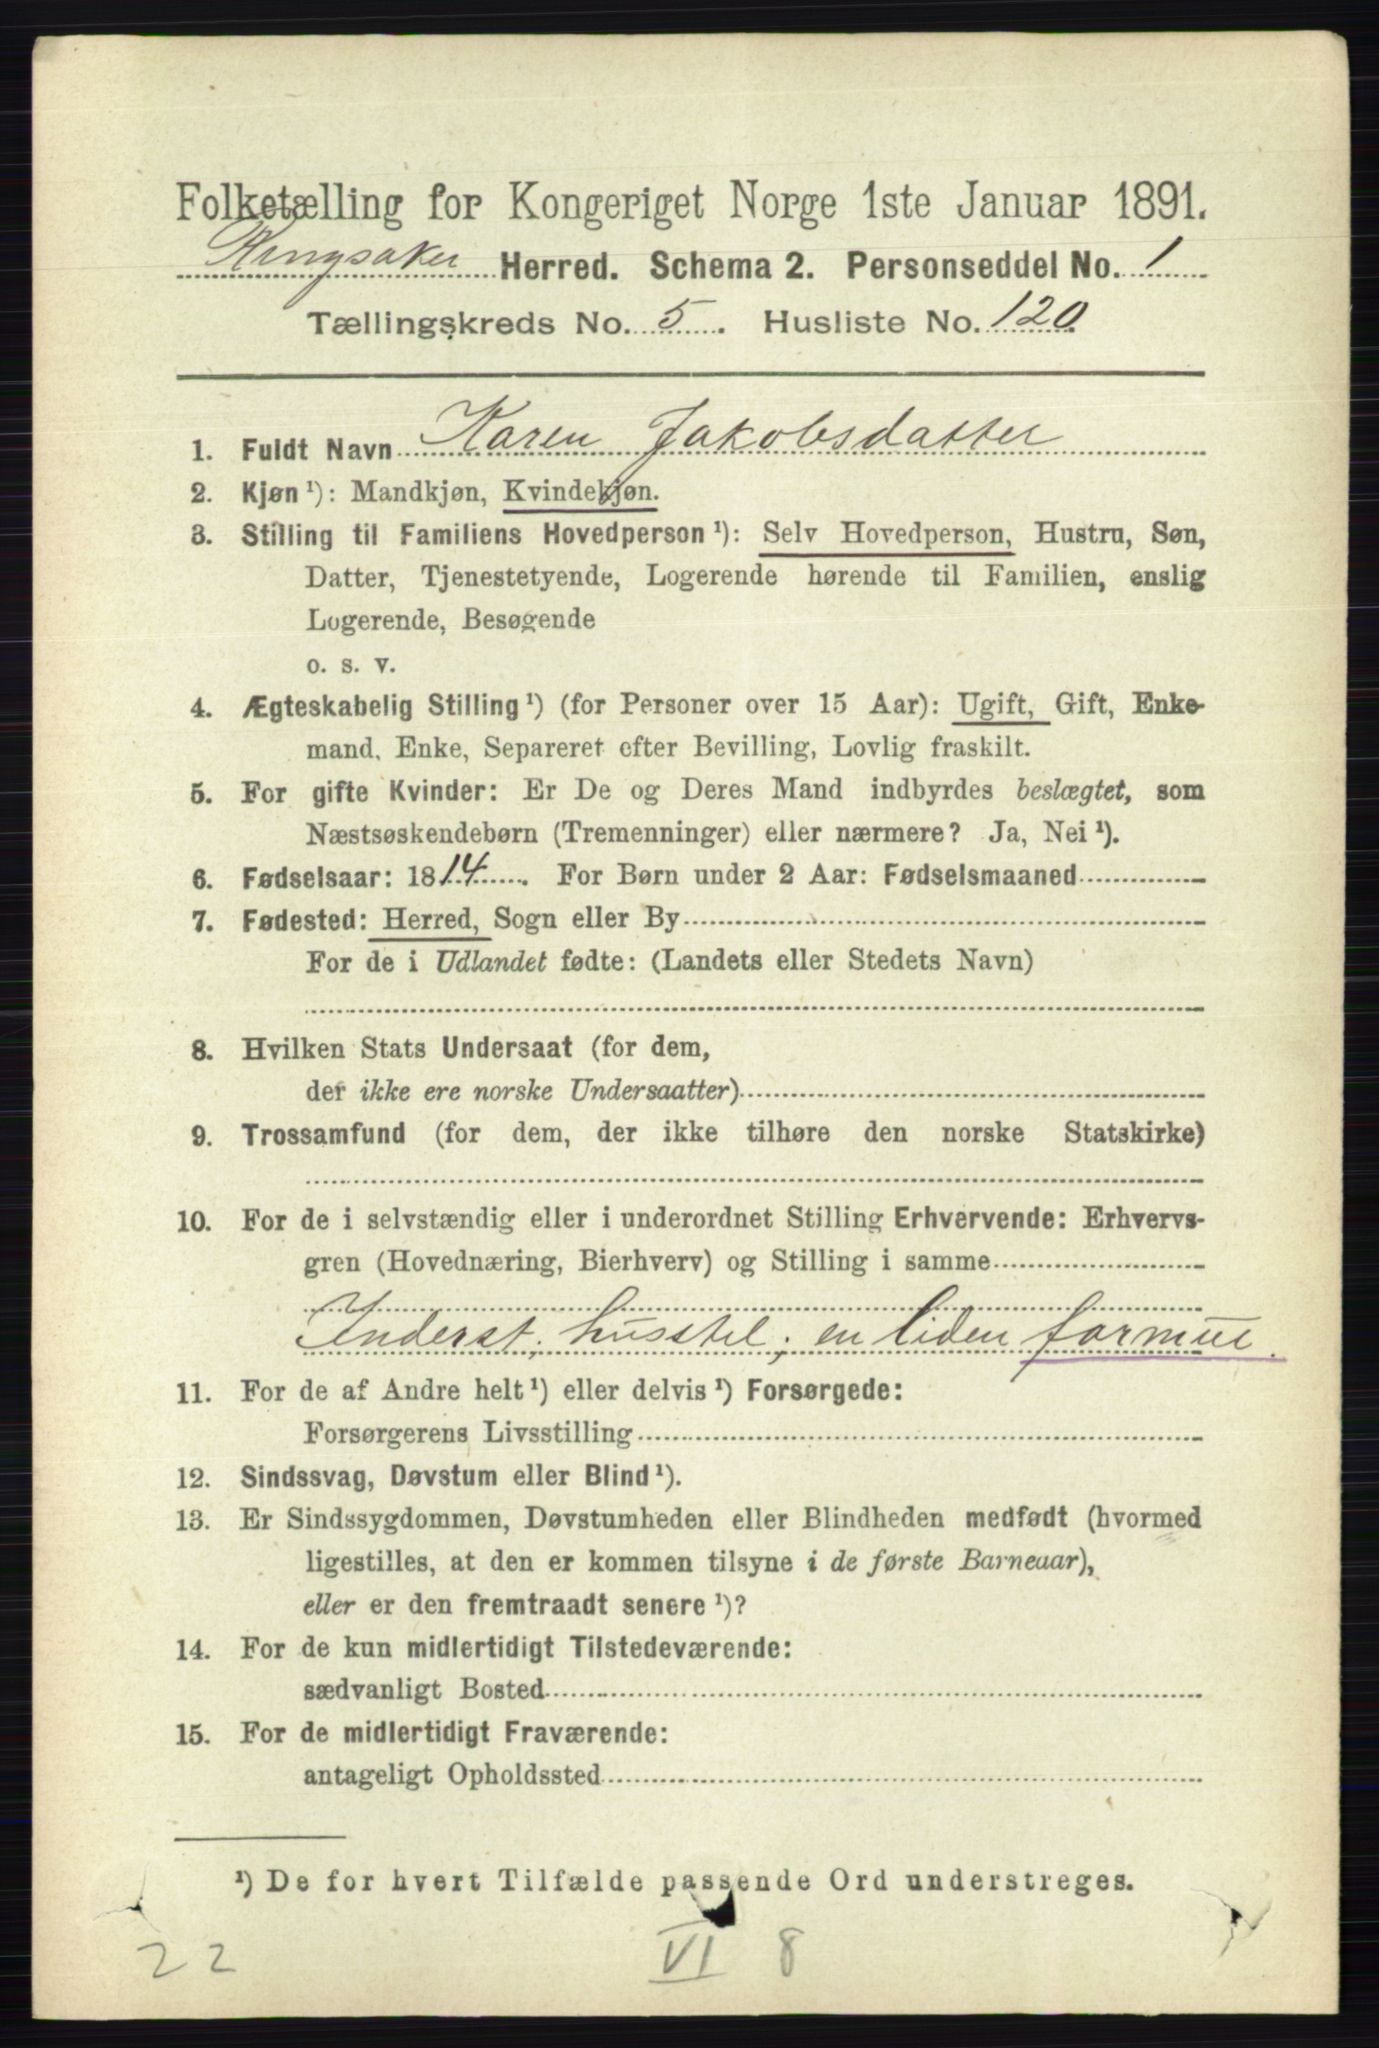 Folketælling for Kongeriget Norge 1ste Januar 1891.
Ringsaker Herred. Schema 2. Personseddel No. 1
Tællingskreds No. 5. Husliste No. 120
1. Fuldt Navn Karen Jakobsdatter
2. Kjøn ¹): Mandkjøn, Kvindekjøn.
3. Stilling til Familiens Hovedperson ¹): Selv Hovedperson, Hustru, Søn,
Datter, Tjenestetyende, Logerende hørende til Familien, enslig
Logerende, Besøgende
o. s. v.
4. Ægteskabelig Stilling ¹) (for Personer over 15 Aar): Ugift, Gift, Enke-
mand, Enke, Separeret efter Bevilling, Lovlig fraskilt.
5. For gifte Kvinder: Er De og Deres Mand indbyrdes beslægtet, som
Næstsøskendebørn (Tremenninger) eller nærmere? Ja, Nei ¹).
6. Fødselsaar: 1814. For Børn under 2 Aar: Fødselsmaaned
7. Fødested: Herred, Sogn eller By
For de i Udlandet fødte: (Landets eller Stedets Navn)
8. Hvilken Stats Undersaat (for dem,
der ikke ere norske Undersaatter)
9. Trossamfund (for dem, der ikke tilhøre den norske Statskirke)
10. For de i selvstændig eller i underordnet Stilling Erhvervende: Erhvervs-
gren (Hovednæring, Bierhverv) og Stilling i samme
Inderst, husstel, en liden formue.
11. For de af Andre helt ¹) eller delvis ¹) Forsørgede:
Forsørgerens Livsstilling
12. Sindssvag, Døvstum eller Blind ¹).
13. Er Sindssygdommen, Døvstumheden eller Blindheden medfødt (hvormed
ligestilles, at den er kommen tilsyne i de første Barneaar),
eller er den fremtraadt senere ¹)?
14. For de kun midlertidigt Tilstedeværende:
sædvanligt Bosted
15. For de midlertidigt Fraværende:
antageligt Opholdssted
¹) De for hvert Tilfælde passende Ord understreges.
22 VI 8